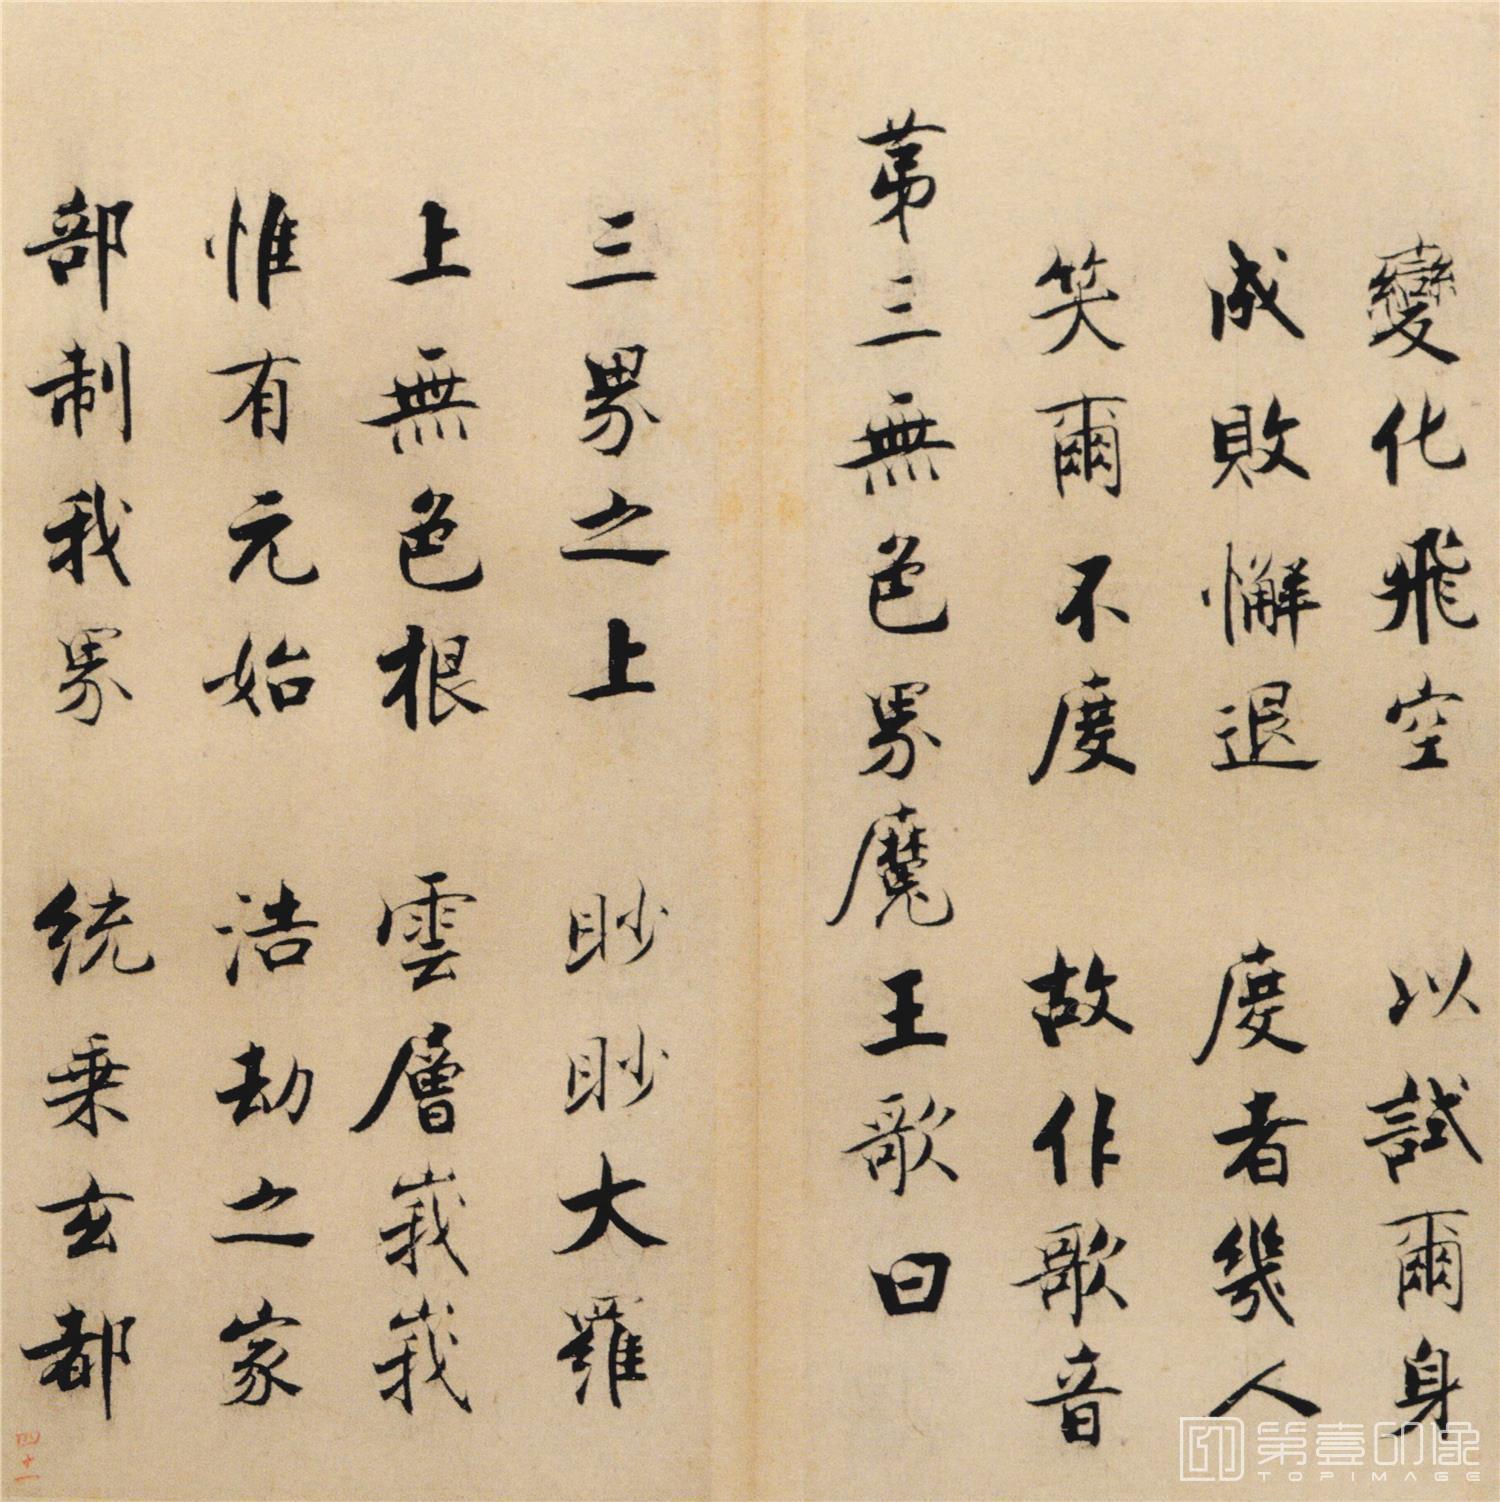 變化飛空　以試爾身
成敗懈退　度者幾人
笑爾不度　故作歌音
苐三無色界魔王歌曰
三界之上　眇眇大羅
上無色根　雲層峩峩
惟有元始　浩劫之家
部制我界　統乗玄都
四十一
第壹印像
TOPIMAGE